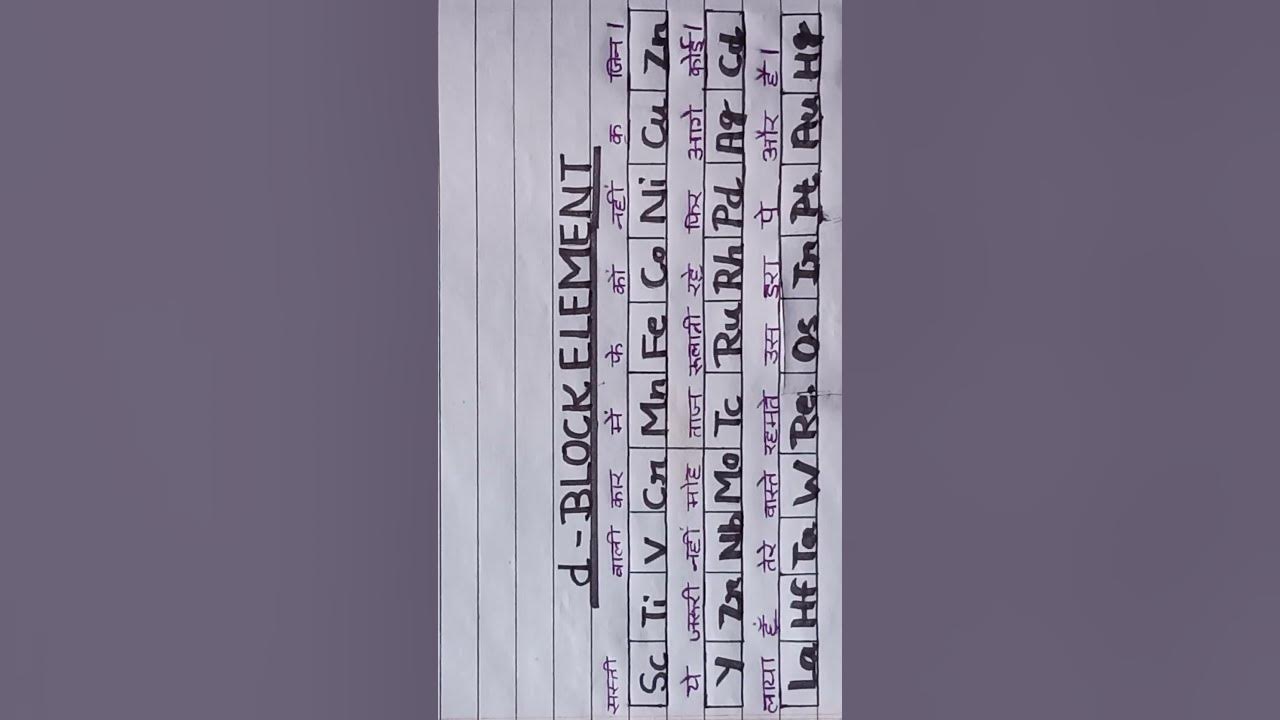 d-BLOCK ELEMENT
सस्ती वाली कार में फे को नहीं क जिन।
Sc Ti V Cr Mn Fe Co Ni Cu Zn
ये जरूरी नहीं मोह ताज रूलाती रहे फिर आगे कोई।
Y Zr Nb Mo Tc Ru Rh Pd Ag Cd
लाया हूँ तेरे वास्ते रहमते उस इरा पे और हैं।
La Hf Ta W Re Os Ir Pt Au Hg